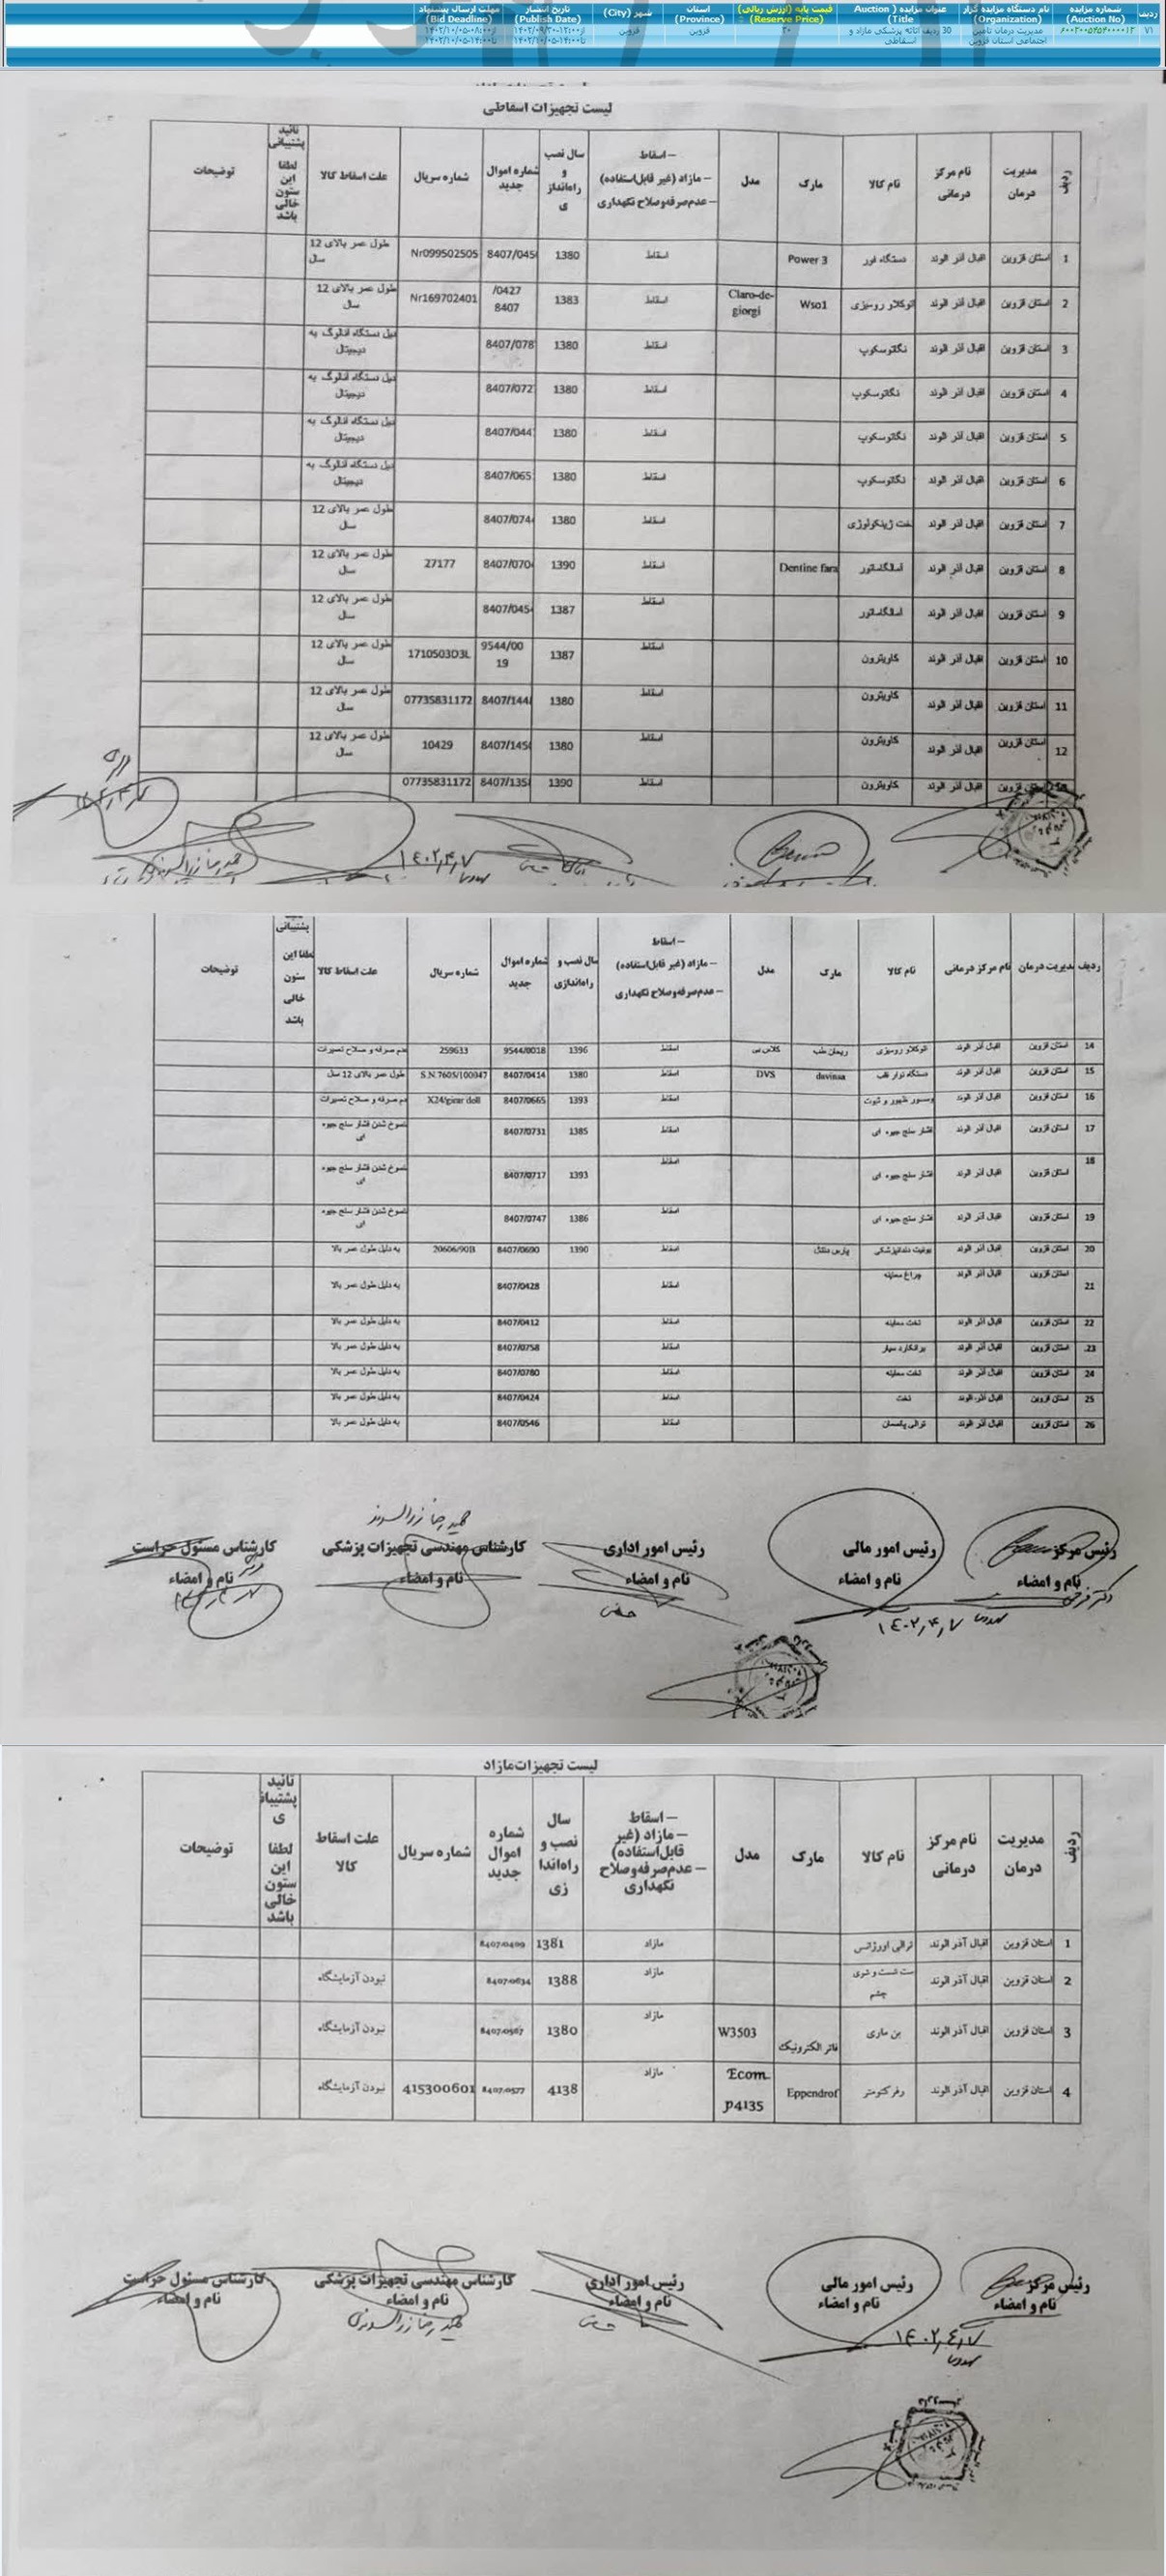 ردیف شماره مزایده (Auction No) نام دستگاه مزایده گزار (Organization) عنوان مزایده (Auction Title) قیمت پایه (ارزش ریالی) (Reserve Price) استان (Province) شهر (City) تاریخ انتشار (Publish Date) مهلت ارسال پیشنهاد (Bid Deadline)
۷۱ مدیریت درمان تامین اجتماعی استان قزوین 30 ردیف اثاثه پزشکی مازاد و اسقاطی ۳۰ قزوین قزوین
لیست تجهیزات اسقاطی
ردیف مدیریت درمان نام مرکز درمانی نام کالا مارک مدل – اسقاط – مازاد (غیر قابل‌استفاده) – عدم‌صرفه‌وصلاح نگهداری سال نصب و راه‌اندازی شماره اموال جدید شماره سریال علت اسقاط کالا تائید پشتیبانی لطفا این ستون خالی باشد توضیحات
1 استان قزوین اقبال آذر الوند دستگاه فور Power 3 اسقاط 1380 8407/045 Nr099502505 طول عمر بالای 12 سال
2 استان قزوین اقبال آذر الوند اتوکلاو رومیزی Wso1 Claro-de-giorgi اسقاط 1383 /0427 8407 Nr169702401 طول عمر بالای 12 سال
3 استان قزوین اقبال آذر الوند نگاتوسکوپ اسقاط 1380 8407/078 دیل دستگاه انالوگ به دیجیتال
4 استان قزوین اقبال آذر الوند نگاتوسکوپ اسقاط 1380 8407/072 دیل دستگاه انالوگ به دیجیتال
5 استان قزوین اقبال آذر الوند نگاتوسکوپ اسقاط 1380 8407/044 دیل دستگاه انالوگ به دیجیتال
6 استان قزوین اقبال آذر الوند نگاتوسکوپ اسقاط 1380 8407/065 دیل دستگاه انالوگ به دیجیتال
7 استان قزوین اقبال آذر الوند تخت ژینکولوژی اسقاط 1380 8407/074 طول عمر بالای 12 سال
8 استان قزوین اقبال آذر الوند امالگاماتور Dentine fara اسقاط 1390 8407/070 27177 طول عمر بالای 12 سال
9 استان قزوین اقبال آذر الوند امالگاماتور اسقاط 1387 8407/045 طول عمر بالای 12 سال
10 استان قزوین اقبال آذر الوند کاویترون اسقاط 1387 9544/0019 1710503D3L طول عمر بالای 12 سال
11 استان قزوین اقبال آذر الوند کاویترون اسقاط 1380 8407/144 07735831172 طول عمر بالای 12 سال
12 استان قزوین اقبال آذر الوند کاویترون اسقاط 1380 8407/145 10429 طول عمر بالای 12 سال
استان قزوین اقبال آذر الوند کاویترون اسقاط 1390 8407/135 07735831172
۱۴۰۲,۴,۷
ردیف مدیریت درمان نام مرکز درمانی نام کالا مارک مدل – اسقاط – مازاد (غیر قابل‌استفاده) – عدم‌صرفه‌وصلاح نگهداری سال نصب و راه‌اندازی شماره اموال جدید شماره سریال علت اسقاط کالا پشتیبانی لطفا این ستون خالی باشد توضیحات
14 استان قزوین اقبال آذر الوند اتوکلاو رومیزی ریحان طب کلاس بی اسقاط 1396 9544/0018 259633 عدم صرفه و صلاح تعمیرات
15 استان قزوین اقبال آذر الوند دستگاه نوار قلب davinsa DVS اسقاط 1380 8407/0414 S.N.7605/100347 طول عمر بالای 12 سال
16 استان قزوین اقبال آذر الوند پروسسور ظهور و ثبوت اسقاط 1393 8407/0665 X24/girar doll عدم صرفه و صلاح تعمیرات
17 استان قزوین اقبال آذر الوند فشار سنج جیوه ای اسقاط 1385 8407/0731 منسوخ شدن فشار سنج جیوه ای
18 استان قزوین اقبال آذر الوند فشار سنج جیوه ای اسقاط 1393 8407/0717 منسوخ شدن فشار سنج جیوه ای
19 استان قزوین اقبال آذر الوند فشار سنج جیوه ای اسقاط 1386 8407/0747 منسوخ شدن فشار سنج جیوه ای
20 استان قزوین اقبال آذر الوند یونیت دندانپزشکی پارس دنتال اسقاط 1390 8407/0690 20606/90B به دلیل طول عمر بالا
21 استان قزوین اقبال آذر الوند چراغ معاینه اسقاط 8407/0428 به دلیل طول عمر بالا
22 استان قزوین اقبال آذر الوند تخت معاینه اسقاط 8407/0412 به دلیل طول عمر بالا
23 استان قزوین اقبال آذر الوند برانکارد سیار اسقاط 8407/0758 به دلیل طول عمر بالا
24 استان قزوین اقبال آذر الوند تخت معاینه اسقاط 8407/0780 به دلیل طول عمر بالا
25 استان قزوین اقبال آذر الوند تخت اسقاط 8407/0424 به دلیل طول عمر بالا
26 استان قزوین اقبال آذر الوند ترالی پانسمان اسقاط 8407/0546 به دلیل طول عمر بالا
رئیس مرکز رئیس امور مالی رئیس امور اداری کارشناس مهندسی تجهیزات پزشکی کارشناس مسئول حراست
نام و امضاء نام و امضاء نام و امضاء نام و امضاء نام و امضاء
۱۴۰۲,۴,۷
لیست تجهیزات‌مازاد
ردیف مدیریت درمان نام مرکز درمانی نام کالا مارک مدل – اسقاط – مازاد (غیر قابل‌استفاده) – عدم‌صرفه‌وصلاح نگهداری سال نصب و راه‌اندازی شماره اموال جدید شماره سریال علت اسقاط کالا تائید پشتیبانی لطفا این ستون خالی باشد توضیحات
1 استان قزوین اقبال آذر الوند ترالی اورژانس مازاد 1381 8407/0409
2 استان قزوین اقبال آذر الوند ست شست و شوی چشم مازاد 1388 8407/0634 نبودن آزمایشگاه
3 استان قزوین اقبال آذر الوند بن ماری فاتر الکترونیک W3503 مازاد 1380 8407/0567 نبودن آزمایشگاه
4 استان قزوین اقبال آذر الوند رفرکتومتر Eppendrof Ecom P4135 مازاد 4138 8407/0577 415300601 نبودن آزمایشگاه
رئیس مرکز رئیس امور مالی رئیس امور اداری کارشناس مهندسی تجهیزات پزشکی کارشناس مسئول حراست
نام و امضاء نام و امضاء نام و امضاء نام و امضاء نام و امضاء
۱۴۰۲,۴,۷